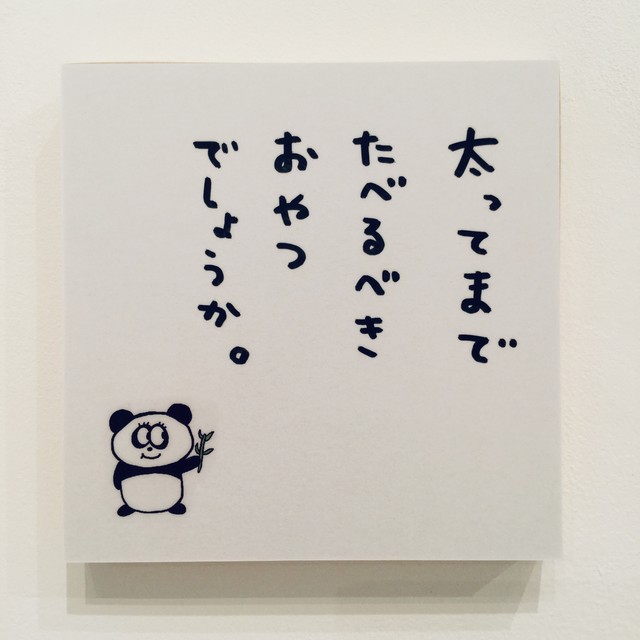 太ってまで
たべるべき
おやつ
でしょうか。